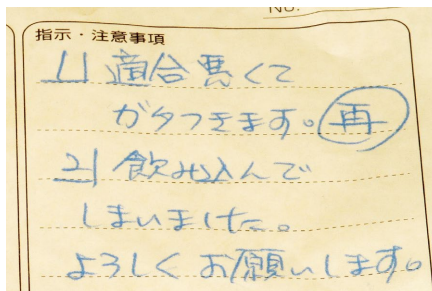 No.
指示・注意事項
1| 適合悪くて
ガタつきます。再
2| 飲み込んで
しまいました。
よろしくお願いします。